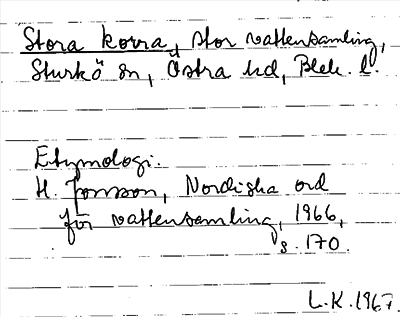 Stora korra, stor vattensamling,
Sturkö sn, Östra hd, Blek. l.
Etymologi.
H. Jonsson, Nordiska ord
för vattensamling, 1966,
s. 170.
L.K. 1967.